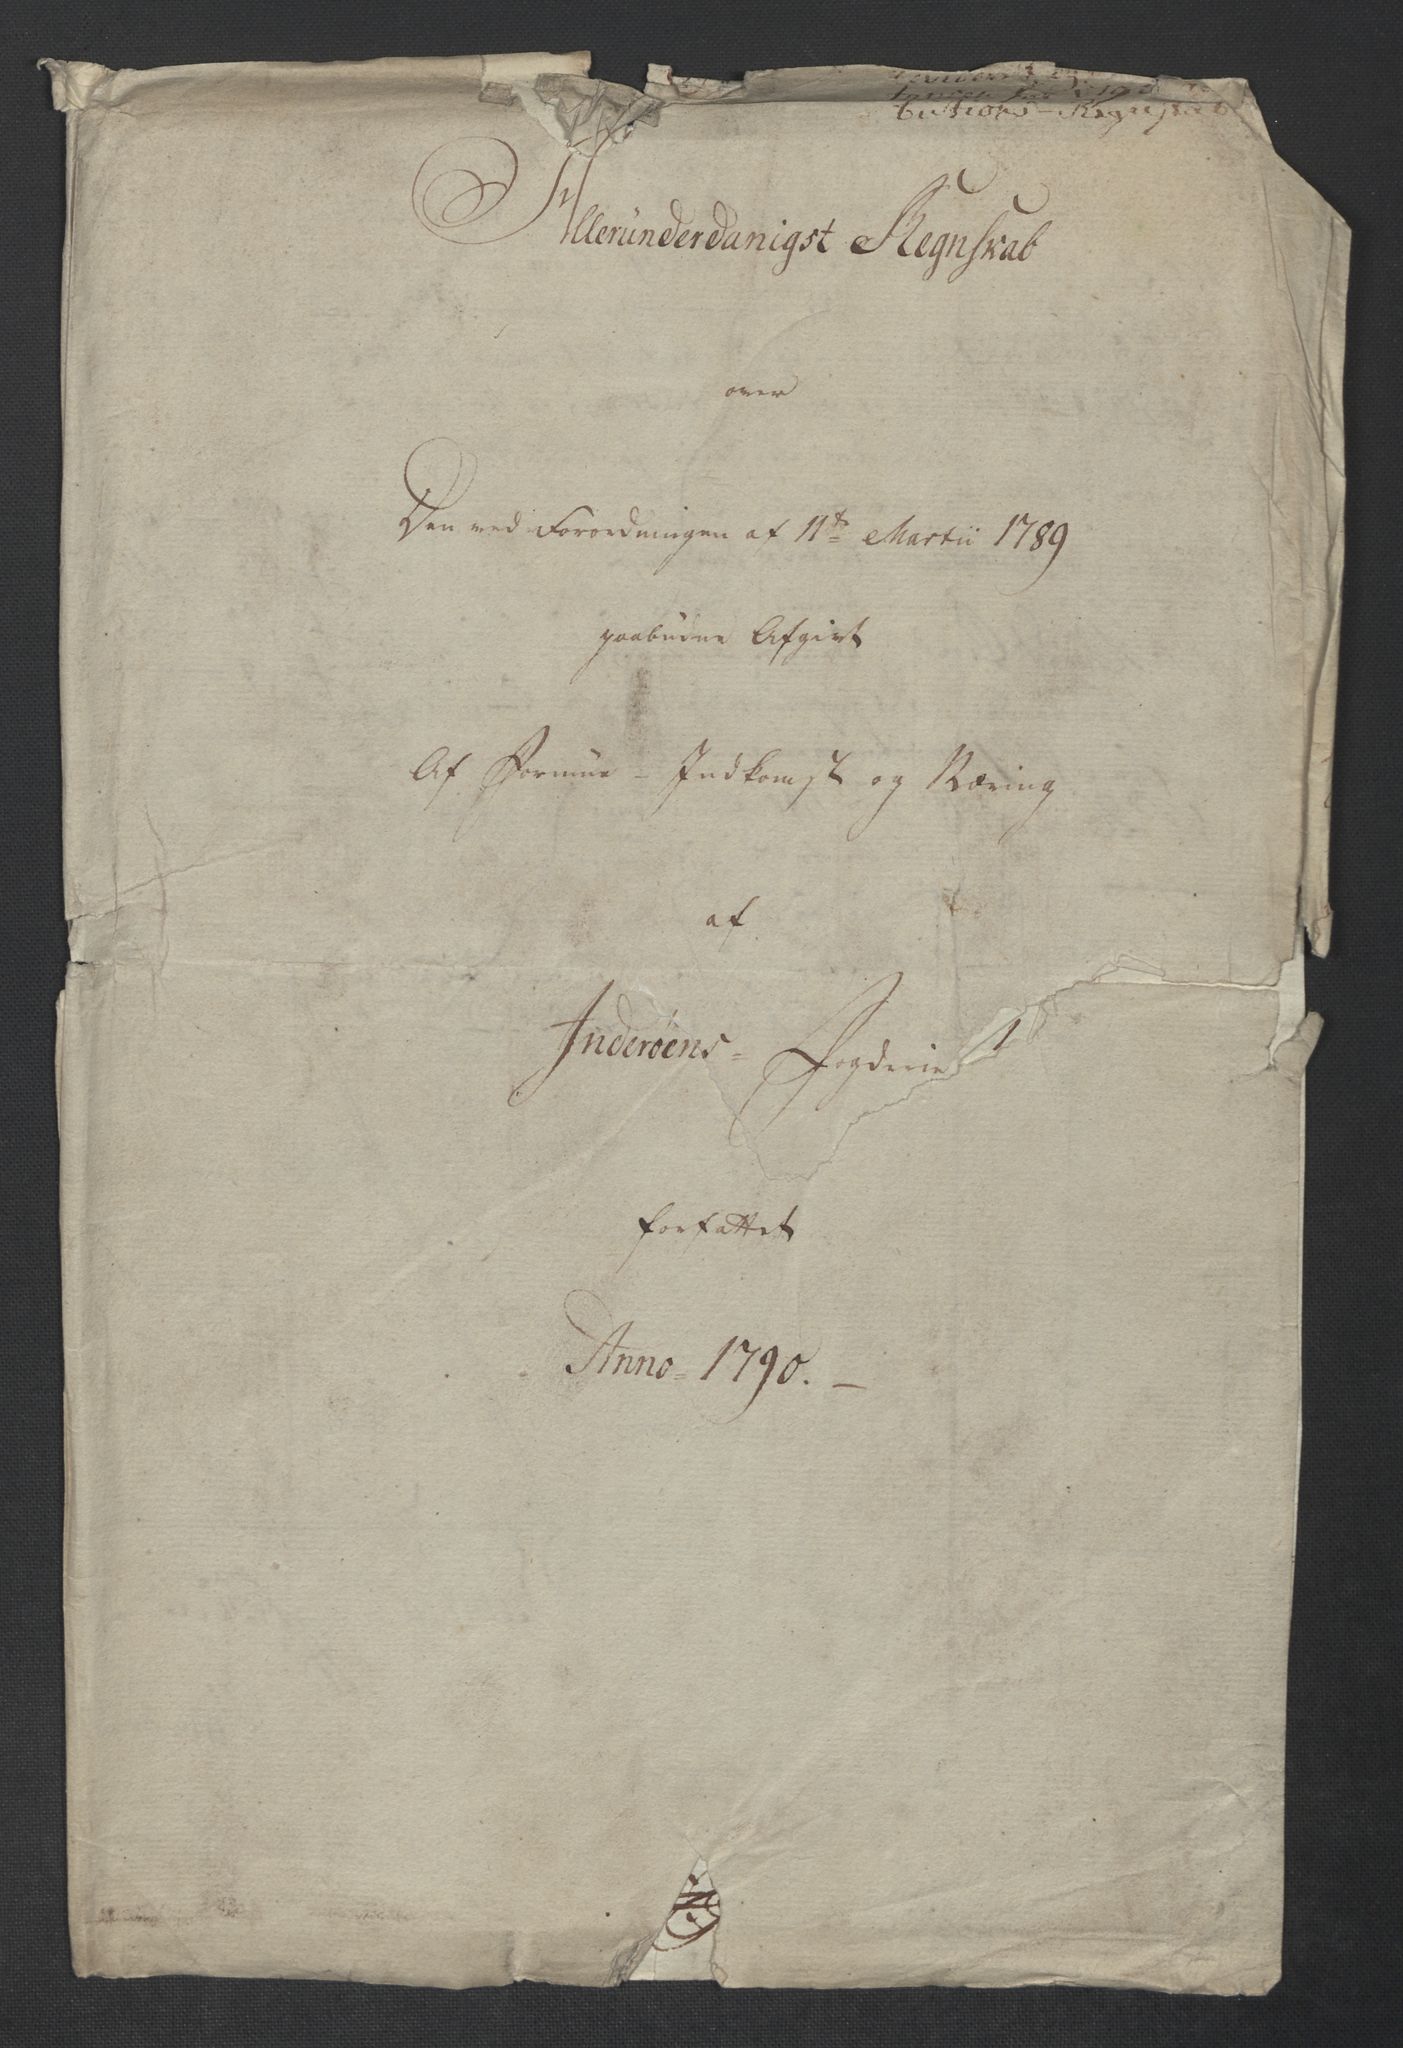 butions-Regnskab
Alleründerdanigst Regnskab
over
Den ved Forordningen af 11te Martii 1789
paabudne Afgivt
Af Formue - Indkomst og Næring
af
Inderøens= Fogderie
forfattet
Anno= 1790. —